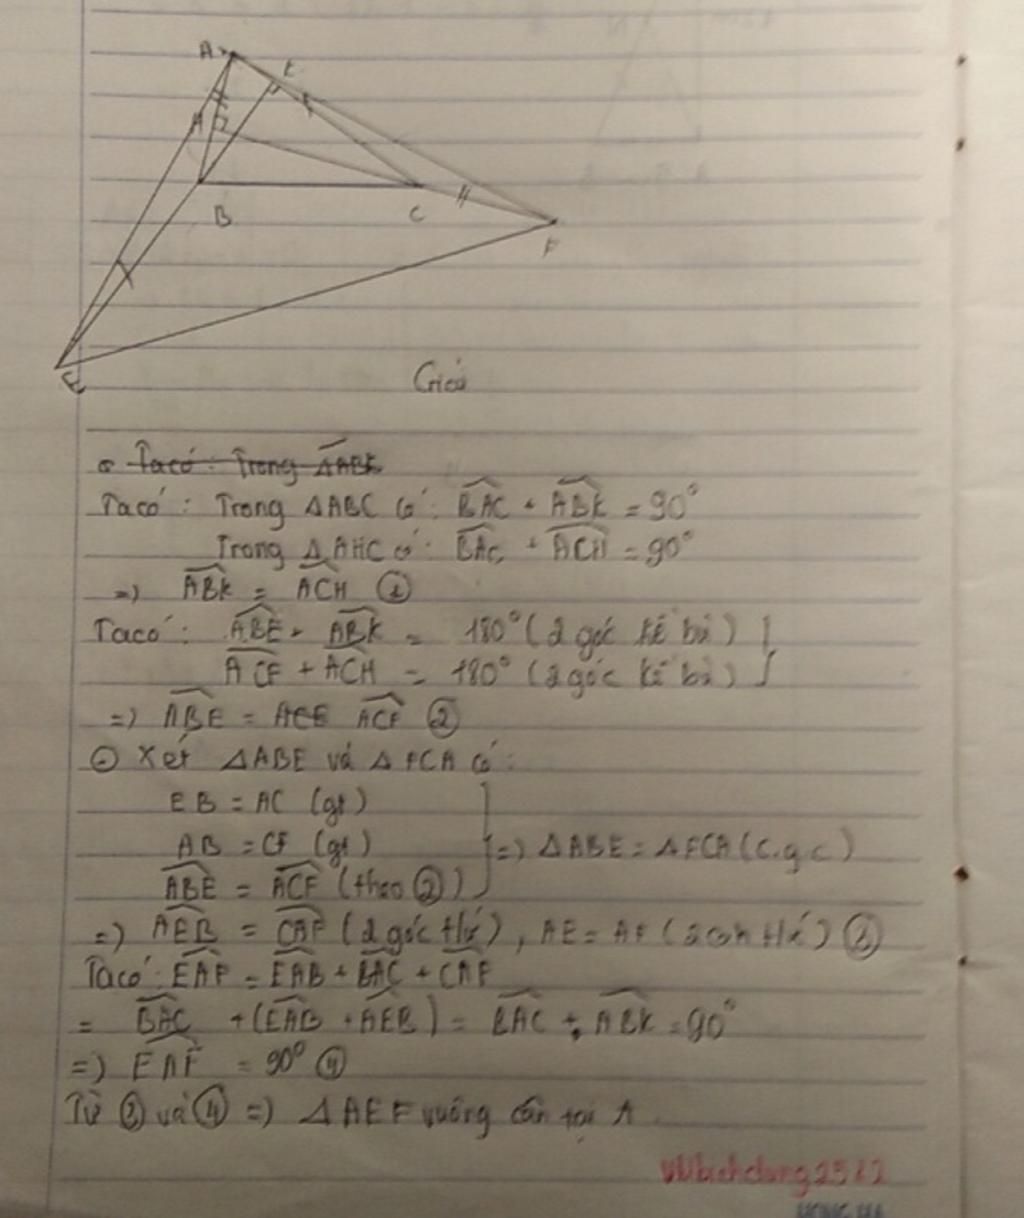 A
K
H
B
C
F
E
Giải
Ta có: Trong ΔABK
Ta có: Trong ΔABC có: BAC + ABK = 90°
Trong ΔAHC có: BAC + ACH = 90°
=) ABK = ACH ①
Ta có: ABE + ABK = 180° (2 góc kề bù)
ACF + ACH = 180° (2 góc kề bù)
=) ABE = ACE ACF ②
Xét ΔABE và ΔFCA có:
EB = AC (gt)
AB = CF (gt) =) ΔABE = ΔFCA (c.g.c)
ABE = ACF (theo ②)
=) AEB = CAF (2 góc t/ứ), AE = AF (2 cạnh t/ứ) ③
Ta có: EAF = EAB + BAC + CAF
= BAC + (EAB + AEB) = BAC + ABK = 90°
=) EAF = 90° ④
Từ ③ và ④ =) ΔAEF vuông cân tại A
vubichdung2512